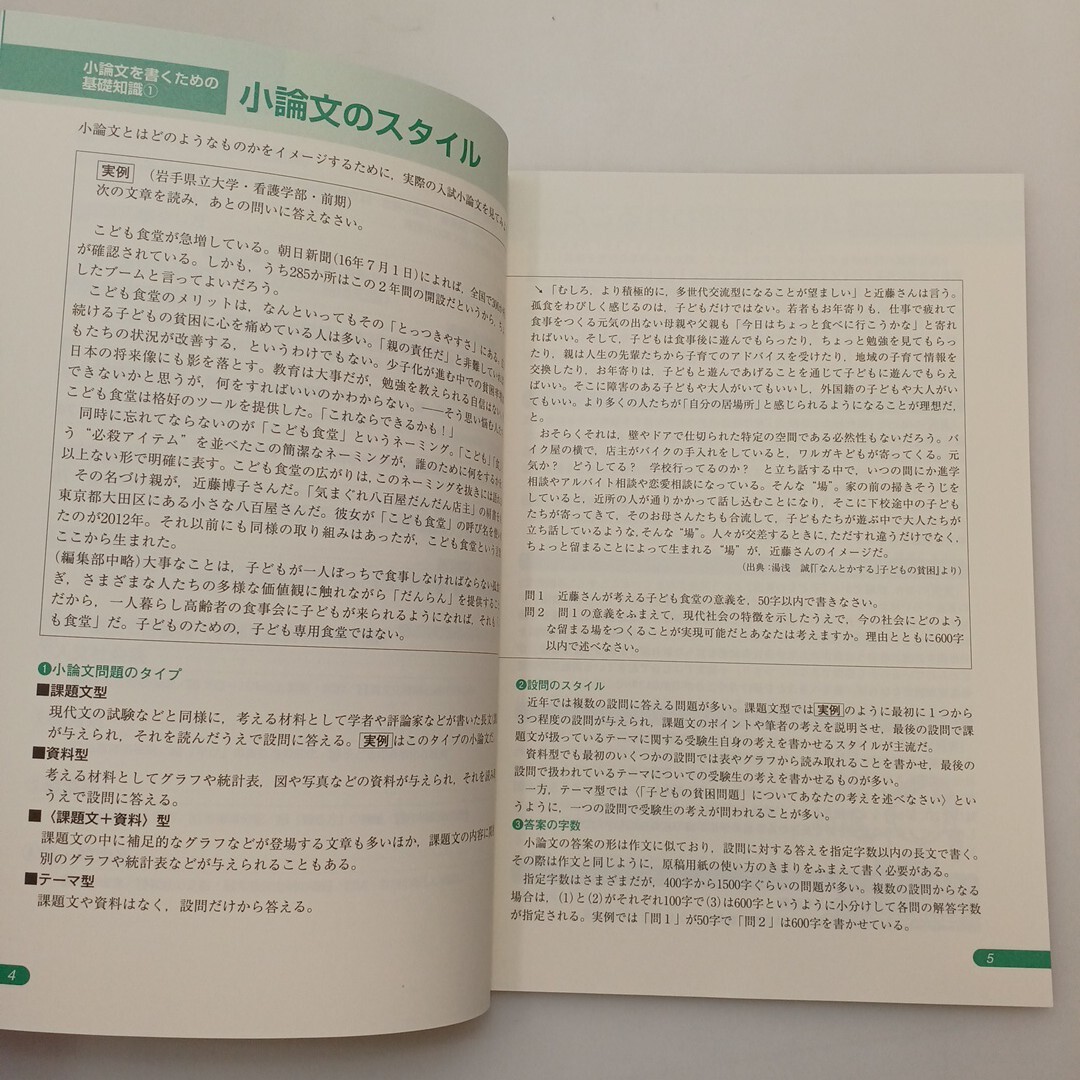 小論文を書くための
基礎知識①
小論文のスタイル
小論文とはどのようなものかをイメージするために，実際の入試小論文を見てみ
実例 （岩手県立大学・看護学部・前期）
次の文章を読み，あとの問いに答えなさい。
こども食堂が急増している。朝日新聞(16年７月１日)によれば，全国で
が確認されている。しかも，うち285か所はこの２年間の開設だというから，
したブームと言ってよいだろう。
こども食堂のメリットは，なんといってもその「とっつきやすさ」にある。
続ける子どもの貧困に心を痛めている人は多い。「親の責任だ」と非難していの
もたちの状況が改善する，というわけでもない。少子化が進む中での貧困
日本の将来像にも影を落とす。教育は大事だが，勉強を教えられる自信はない
できないかと思うが，何をすればいいのかわからない。――そう思い悩む人
こども食堂は格好のツールを提供した。「これならできるかも！」
同時に忘れてならないのが「こども食堂」というネーミング。「こども」「食
う“必殺アイテム”を並べたこの簡潔なネーミングが，誰のために何をするか
以上ない形で明確に表す。こども食堂の広がりは，このネーミングを抜きには
その名づけ親が，近藤博子さんだ。「気まぐれ八百屋だんだん店主」の肩書
東京都大田区にある小さな八百屋さんだ。彼女が「こども食堂」の呼び名を使い
たのが2012年。それ以前にも同様の取り組みはあったが，こども食堂という
ここから生まれた。
(編集部中略)大事なことは，子どもが一人ぼっちで食事しなければならない
ぎ，さまざまな人たちの多様な価値観に触れながら「だんらん」を提供すること
だから，一人暮らし高齢者の食事会に子どもが来られるようになれば，それも
も食堂」だ。子どものための，子ども専用食堂ではない。
❶小論文問題のタイプ
■課題文型
現代文の試験などと同様に，考える材料として学者や評論家などが書いた長文
が与えられ，それを読んだうえで設問に答える。実例はこのタイプの小論文だ
■資料型
考える材料としてグラフや統計表，図や写真などの資料が与えられ，それを読み
うえで設問に答える。
■〈課題文＋資料〉型
課題文の中に補足的なグラフなどが登場する文章も多いほか，課題文の内容に関
別のグラフや統計表などが与えられることもある。
■テーマ型
課題文や資料はなく，設問だけから答える。
4
↘「むしろ，より積極的に，多世代交流型になることが望ましい」と近藤さんは言う。
孤食をわびしく感じるのは，子どもだけではない。若者もお年寄りも，仕事で疲れて
食事をつくる元気の出ない母親や父親も「今日はちょっと食べに行こうかな」と寄れ
ればいい。そして，子どもは食事後に遊んでもらったり，ちょっと勉強を見てもらっ
たり，親は人生の先輩たちから子育てのアドバイスを受けたり，地域の子育て情報を
交換したり，お年寄りは，子どもと遊んであげることを通じて子どもに遊んでもらえ
ばいい。そこに障害のある子どもや大人がいてもいいし，外国籍の子どもや大人がい
てもいい。より多くの人たちが「自分の居場所」と感じられるようになることが理想だ，
と。
おそらくそれは，壁やドアで仕切られた特定の空間である必然性もないだろう。バ
イク屋の横で，店主がバイクの手入れをしていると，ワルガキどもが寄ってくる。元
気か？ どうしてる？ 学校行ってるのか？ と立ち話する中で，いつの間にか進学
相談やアルバイト相談や恋愛相談になっている。そんな“場”。家の前の掃きそうじ
をしていると，近所の人が通りかかって話し込むことになり，そこに下校途中の子ども
たちが寄ってきて，そのお母さんたちも合流して，子どもたちが遊ぶ中で大人たちが
立ち話しているような，そんな“場”。人々が交差するときに，ただすれ違うだけでなく，
ちょっと留まることによって生まれる“場”が，近藤さんのイメージだ。
（出典：湯浅 誠『「なんとかする」子どもの貧困』より）
問１ 近藤さんが考える子ども食堂の意義を，50字以内で書きなさい。
問２ 問１の意義をふまえて，現代社会の特徴を示したうえで，今の社会にどのよう
な留まる場をつくることが実現可能だとあなたは考えますか。理由とともに600字
以内で述べなさい。
❷設問のスタイル
近年では複数の設問に答える問題が多い。課題文型では実例のように最初に１つから
３つ程度の設問が与えられ，課題文のポイントや筆者の考えを説明させ，最後の設問で課
題文が扱っているテーマに関する受験生自身の考えを書かせるスタイルが主流だ。
資料型でも最初のいくつかの設問では表やグラフから読み取れることを書かせ，最後の
設問で扱われているテーマについての受験生の考えを書かせるものが多い。
一方，テーマ型では〈「子どもの貧困問題」についてあなたの考えを述べなさい〉とい
うように，一つの設問で受験生の考えが問われることが多い。
❸答案の字数
小論文の答案の形は作文に似ており，設問に対する答えを指定字数以内の長文で書く。
その際は作文と同じように，原稿用紙の使い方のきまりをふまえて書く必要がある。
指定字数はさまざまだが，400字から1500字ぐらいの問題が多い。複数の設問からなる
場合は，(1)と(2)がそれぞれ100字で(3)は600字というように小分けして各問の解答字数
が指定される。実例では「問１」が50字で「問２」は600字を書かせている。
5